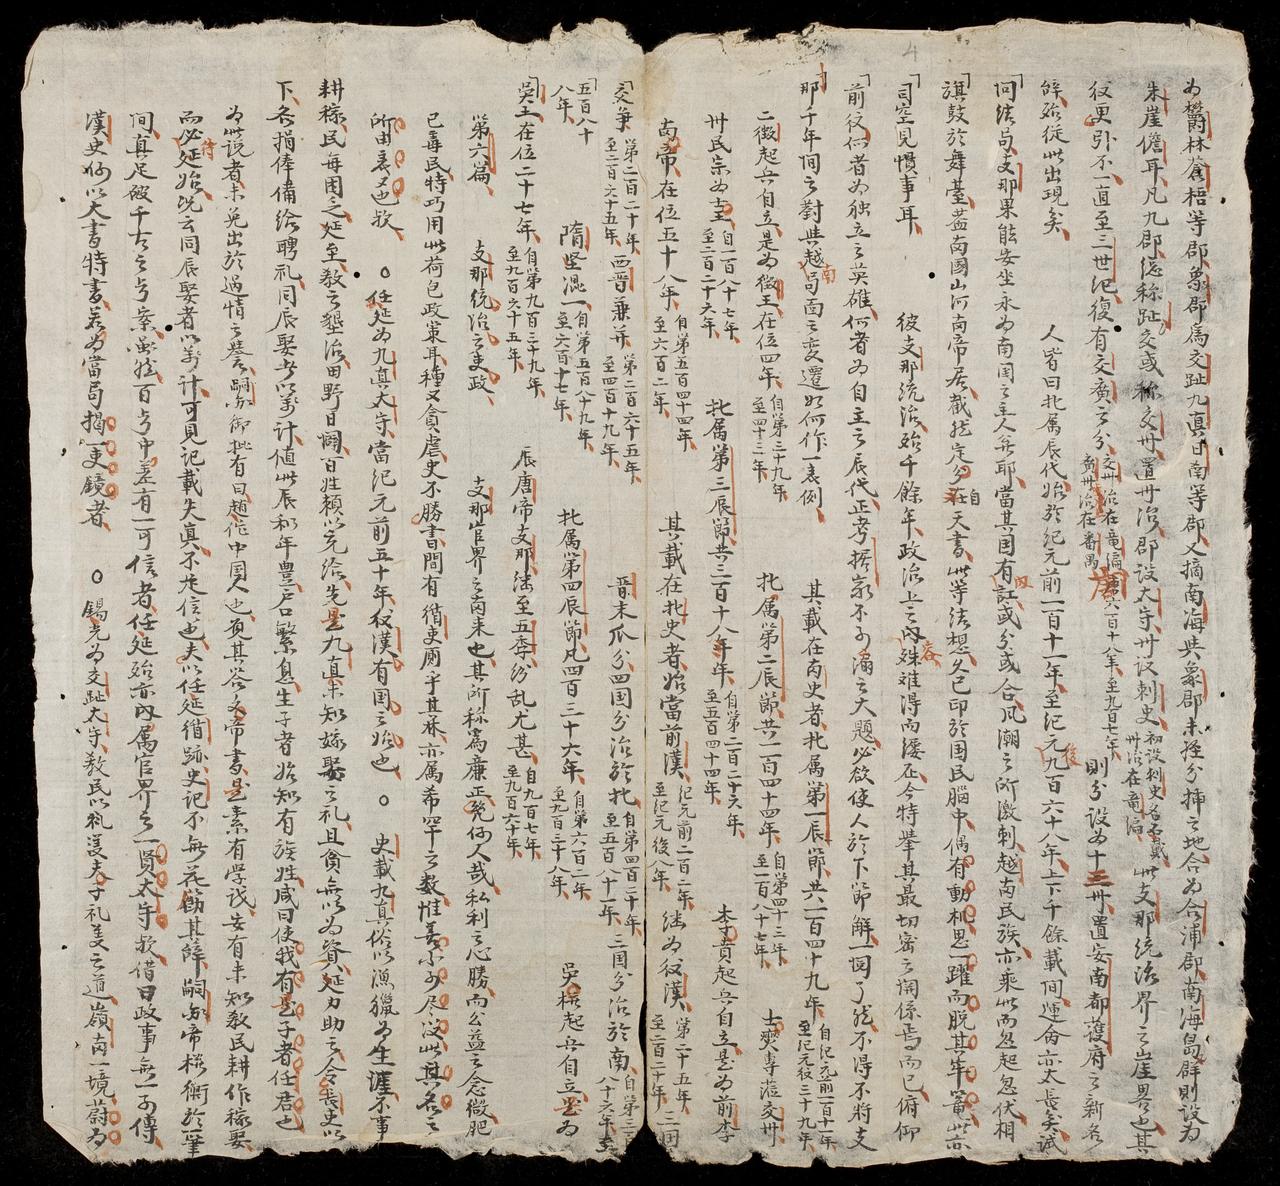 為欝林蒼梧等郡象郡爲交趾九真日南等郡又摘南海與象郡未授分揷之地合為合浦郡南海島群則設為
朱崖儋耳凡九郡總称趾交或称交州置州治郡設太守州伇刺史初設刺史名召戴州治在竜徧此支那統治界之崖畧也其
伇更引不一直至三世紀復有交廣之分交州治在竜徧廣州治在番禺唐六百十八年至九百七年則分設如十三州置安南都護府之新名
辞殆從此出現矣 人皆曰北属辰代始於紀元前一百十一年至紀元後九百六十八年上下千餘載间運會亦太長矣試
问法局支那果能安坐永為南国之主人翁耶當其国有或分或合風潮之所激刺越南民族亦乘此而忽起忽伏相
旗鼓於舞臺盖南國山河南帝居截然定分在天書此等法想久已印於国民腦中偶有動机思一躍而脱其牢籠此亦
司空見慣事耳 彼支那統治殆千餘年政治上之内容殊难得而縷在今特舉其最切密之関係焉而已俯仰
前伇何者為独立之英雄何者為自主之辰代正考據家不可漏之大題必欲使人於下節解一図了然不得不將支
那千年间之對與越南局面之变遷如何作一表例 其載在南史者北属第一辰節共一百四十九年自紀元前一百十一年至紀元後三十九年
二徵起兵自立是為徵王在位四年自第三十九年至四十三年 北属第二辰節共一百四十四年自第四十三年至一百八十七年 士燮專涖交州
州民宗為王自一百八十七年至二百二十六年 北属第三辰節共三百十八年自第二百二十六年至五百四十四年 李賁起兵自立是為前李
南帝在位五十八年自第五百四十四年至六百二年 其載在北史者始當前漢紀元前二百二年至紀元後八年継為伇漢第二十五年至二百二十年三囯
交争第二百二十年至二百六十五年西晋兼并第二百六十五年至四百十九年 晋末瓜分四国分治於北自第四百二十年至五百八十一年三囯分治於南自第三百八十六年至
五百八十八年 隋坚混一自第五百八十九年至六百十七年 北属第四辰節凡四百三十六年自第六百二年至九百三十八年 吳權起兵自立是為
吳王在位二十七年自第九百三十九年至九百六十五年 辰唐帝支那継至五季紛乱尤甚自九百七年至九百六十年
第六篇 支那統治之吏政 支那官界之南來也其所称為廉正凳何人哉私利之心勝而公益之念微肥
己毒民特巧用此荷包政策耳種又貪虐史不勝書间有循吏厠乎其林亦属希罕之数惟善不可尽没此其名之
所由表著也欤 ○ 任延為九真太守當紀元前五十年伇漢有国之始也 ○ 史載九真俗以漁獵為生涯不事
耕稼民每困乏延至教之墾治田野日闢百姓頼以充給先是九真未知嫁娶之礼且貪無以為資延力助之令長史以
下各捐俸備給聘礼同辰娶者以萬計值此辰和年豊户口繁息生子者始知有族姓咸曰使我有是子者任君也
為此說者未免出於過情之譽嗣尔御批有曰趙佗中国人也覓其荅文帝書是素有学识安有未知教民耕作稼娶
而必待延始况云同辰娶者以萬計可見記載失真不足信也夫以任延循跡史記不無花勧其辞嗣尔帝权衡於一筆
间真足破千古之号案雖然百专中差有一可信者任延殆亦内属官界之一賢太守欤借曰政事無一可傳
漢史何以大書特書若為當局掲一吏鏡者 ○ 錫光為交趾太守教民以礼㕛夫子礼义之道嶺南一境蔚為